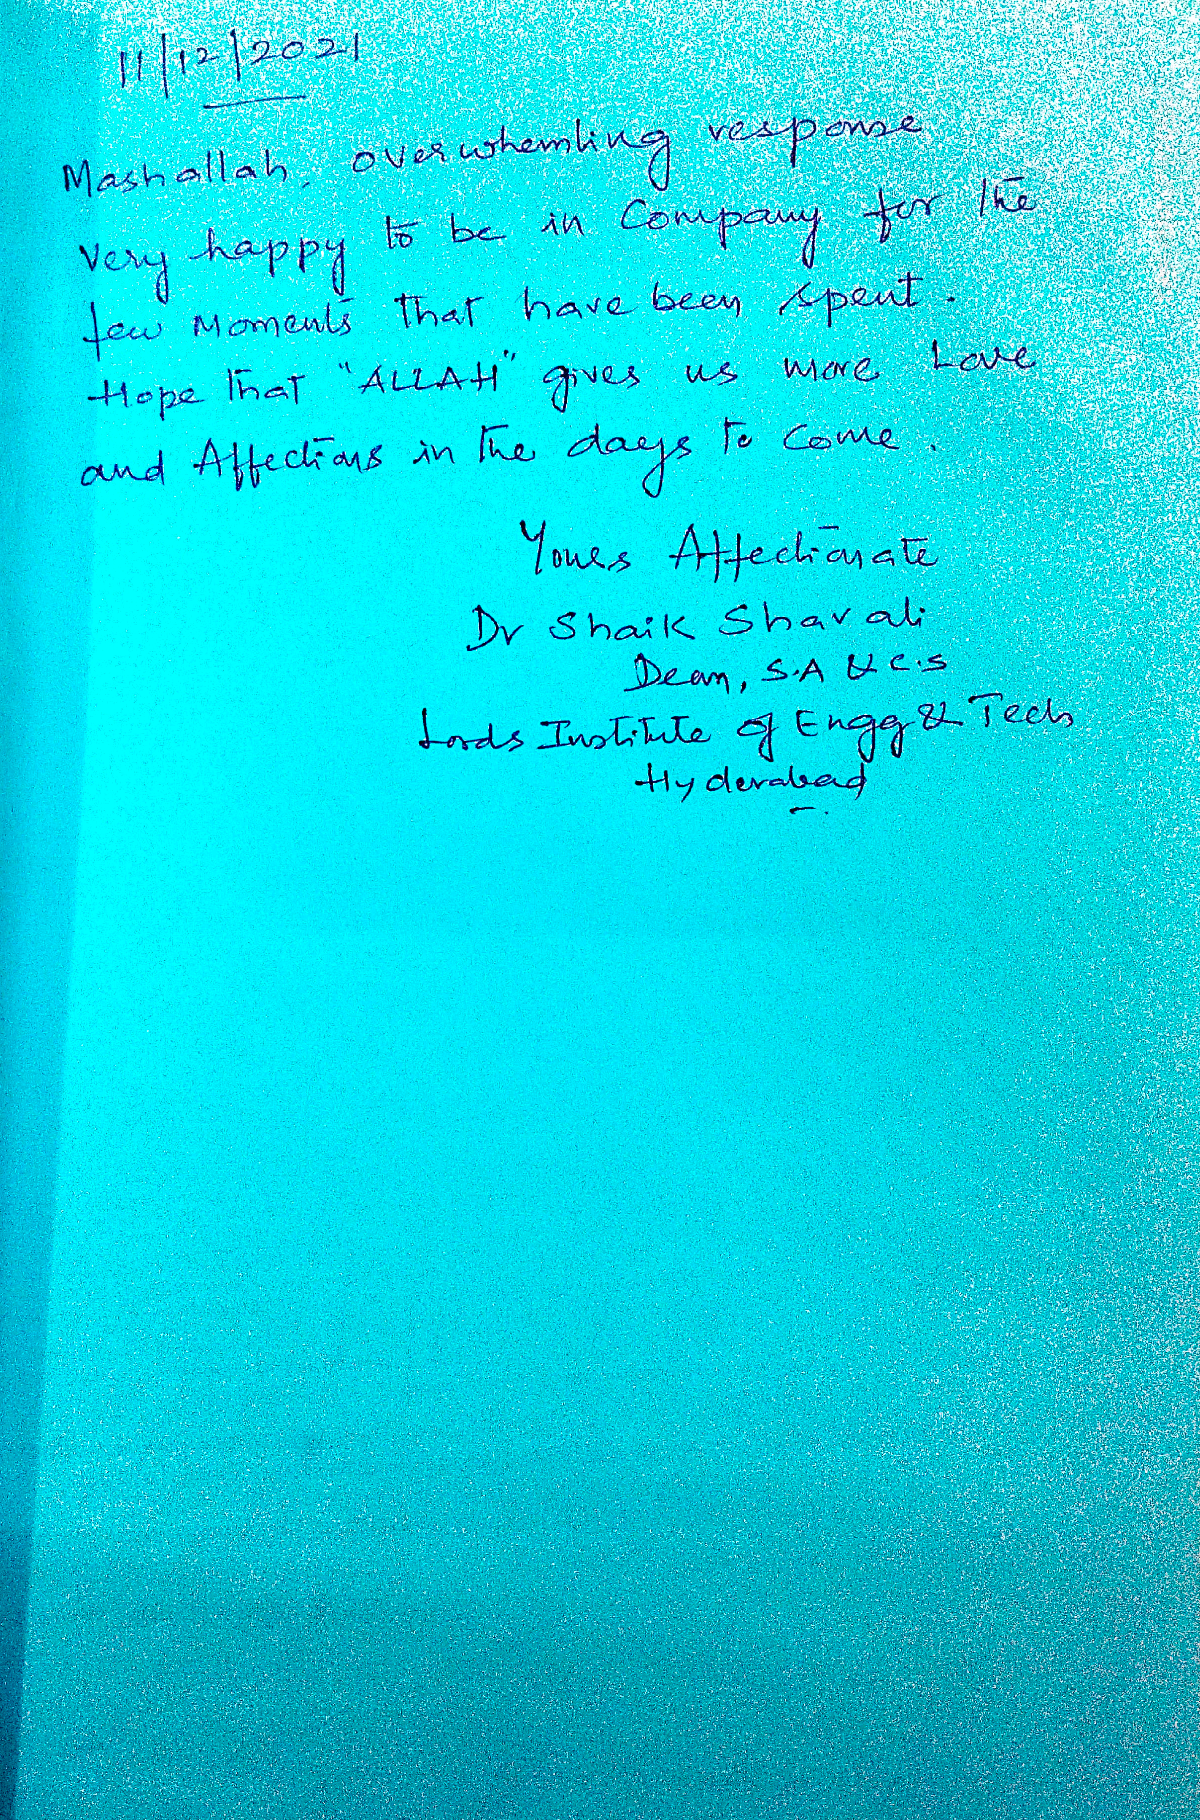 11/12/2021
Mashallah, overwhemling response
very happy to be in Company for the
few Moments that have been spent.
Hope that "ALLAH" gives us more Love
and Affections in the days to come.
Yours Affectionate
Dr Shaik Shavali
Dean, S.A & C.S
Lords Institute of Engg & Tech
Hyderabad